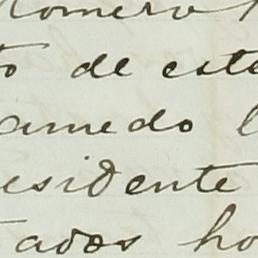 Romero
to de este
amedo l
esidente
tados ho